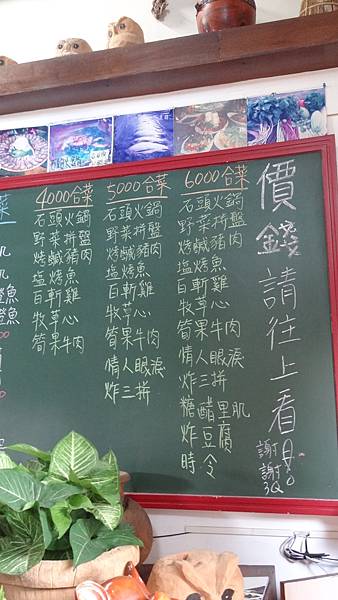 價錢請往上看
謝謝
3Q
6000合菜
石頭火鍋
野菜拼盤
烤鹹豬肉
塩烤魚
白斬雞
牧草心
筍果牛肉
情人眼淚
炸三拼
糖醋里肌
炸豆腐
時令
5000合菜
石頭火鍋
野菜拼盤
烤鹹豬肉
塩烤魚
白斬雞
牧草心
筍果牛肉
情人眼淚
炸三拼
4000合菜
石頭火鍋
野菜拼盤
烤鹹豬肉
塩烤魚
白斬雞
牧草心
筍果牛肉
菜
肌
魚
魚